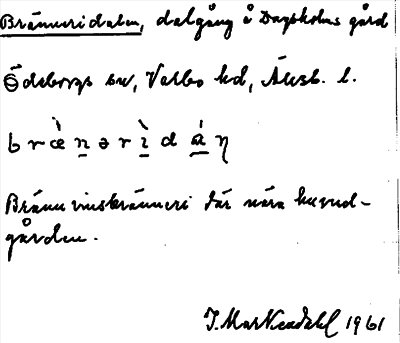 Bränneridalen, dalgång å Dagsholms gård
Ödeborgs sn, Valbo hd, Älvsb. l.
b r æ̀ n ə r ì d á ŋ
Brännvinsbränneri där nära huvud-
gården.
1961